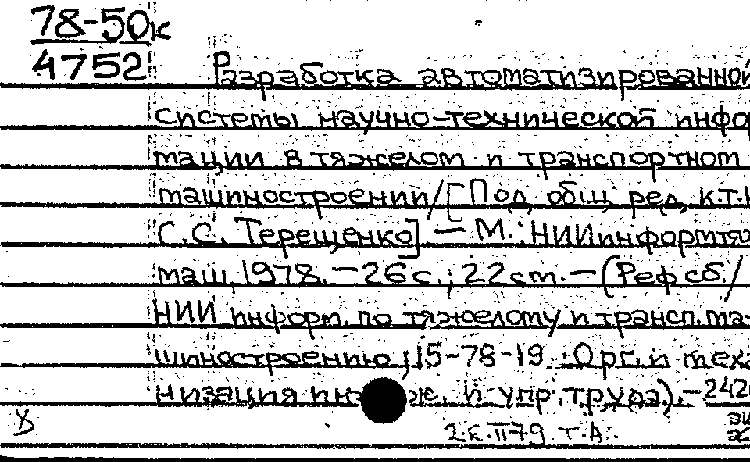 78-50к
4752
Разработка автоматизированной
системы научно-технической инфор
мации в тяжелом и транспортном
машиностроении/[Под общ. ред. к.т.н
С.С. Терещенко] — М.: НИИинформтяж
маш, 1978. — 26 с.; 22 см. — (Реф. сб./
НИИ информ. по тяжелому и трансп. ма-
шиностроению; 15-78-19. Орг. и меха
низация инж. и упр. труда). — 242
2.к.II79 т.А.